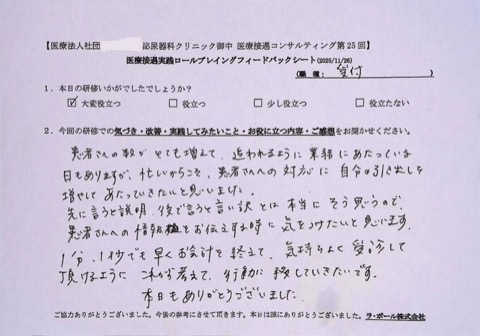 【医療法人社団 泌尿器科クリニック御中 医療接遇コンサルティング第25回】
医療接遇実践ロールプレイングフィードバックシート(2025/11/26)
(職種:受付)
1.本日の研修いかがでしたでしょうか?
☑大変役立つ □役立つ □少し役立つ □役立たない
2.今回の研修での気づき・改善・実践してみたいこと・お役に立つ内容・ご感想をお聞かせください。
患者さんの数がとても増えて、追われるように業務にあたっている
日もありますが、忙しいからこそ、患者さんへの対応に自分の引き出しを
増やしてあたっていきたいと思いました。
先に言うと説明、後で言うと言い訳とは本当にそう思うので、
患者さんへの情報をお伝えする時に気をつけたいと思います。
1分、1秒でも早くお会計を終えて、気持ちよく受診して
頂けるようにこれからも考えて、行動に移していきたいです。
本日もありがとうございました。
ご協力ありがとうございました。今後の参考にさせて頂きます。本日は誠にありがとうございました。ラ・ポール株式会社